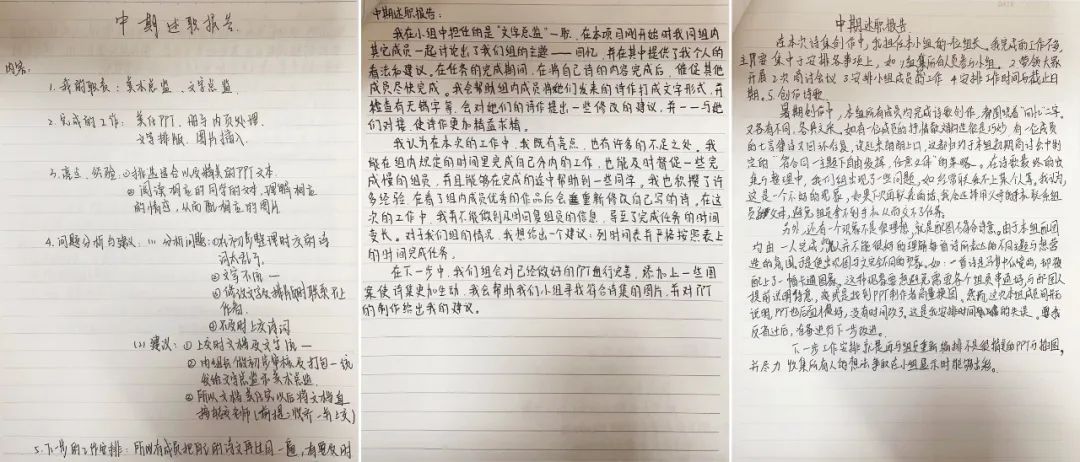 中期述职报告.
内容:
1.我的职务:美术总监、文字总监
2.完成的工作:美化PPT、图与内页处理
文字排版、图片插入
3.亮点、经验:①排适合以及精美的PPT文本
②阅读相应的同学的文对,理解相应
的情感,从而配相应的图片
4.问题分析与建议:(1)分析问题:①从初步整理时文的诗
词太乱了.
②文字不用一
③修改文字及排版时联系不上
作者.
④不及时上交诗词
(2)建议:①上交时文档及文字统一
②由组长做初步审核及打包一统
发给文字总监和美术总监.
③所以文档美化完以后将文档直
5.下一步的工作安排:所以有成员把自己的诗文再过目一遍,有要及时
中期述职报告:
我在小组中担任的是“文字总监”一职,在本项目刚开始时我同组内
其它成员一起讨论出了我们组的主题——回忆,并在其中提供了我个人的
看法和建议。在任务的完成期间,在将自己诗的内容完成后,催促其他
成员尽快完成。我会帮助组内成员将她们发来的诗作打成文字形式,并
检查有无错字等,会对她们的诗作提出一些修改的建议,并一一与她
们对接,使诗作更加精益求精。
我认为在本次的工作中,我既有亮点,也有许多的不足之处。我
能在组内规定的时间里完成自己分内的工作,也能及时督促一些完
成慢的组员,并且能够在完成的途中帮助到一些同学,我也积攒了许
多经验,在看了组内成员优秀的作品后会重新修改自己写的诗。在这
次的工作中,我有不能做到及时回复组员的信息,导至了完成任务的时间
变长。对于我们组的情况,我想给出一个建议:列时间表并严格按照表上
的时间完成任务。
在下一步中,我们组会对已经做好的PPT进行完善,添加上一些图
案使诗集更加生动,我会帮助我们小组寻找符合诗集的图片,并对PPT
的制作给出我的建议。
中期述职报告
在本次诗集创作中,我担任本小组的组长。我完成的工作不多,
主要集中于安排各事项上,如1.组集所有人员参与小组。2.带领大家
开展2次商讨会议 3.安排小组成员的工作 4.安排工作时间与截止日
期。5.创作诗歌
暑期创作中,本组所有成员均完成诗歌创作,都围绕着“回忆”二字,
又各有不同,各具文采。如有一位成员的抒情散文
的七言律诗又回环往复,读起来朗朗上口,这都归功于本组假期商讨会中制
定的“各合同一主题下自由发挥,任意文体”的策略。在诗歌最终的收
集与整理中,我们组出现了一些问题,如经常联系不上某个人等,我认为,
这是个不好的现象,如果下次再联系的话,我会选择用父母的手机联系组
员,避免组员拿不到手机从而交不了任务。
另外,还有一个现象不是很理想,就是配图不符合诗意。由于本组配图
均由一人完成,她并不能很好的理解每首诗所表达的不同意与想营
造的氛围,于是便出现图与文完全不同的现象。如:一首诗是
配上了一幅卡通图案。这种现象要想避免需要各个组员事道好,与配图人
提前说明情意,或或是找到PPT制作者商量换图。然而,这次本组成员间未
说明,PPT也后面才做好,没有时间改了,这是我安排时间的失误。
反省过后,准备进行下一步改进。
下一步工作安排就是与组员重新编排不是很精美的PPT与插图,
并尽力收集所有人的想法争取在小组显示时能够出彩。